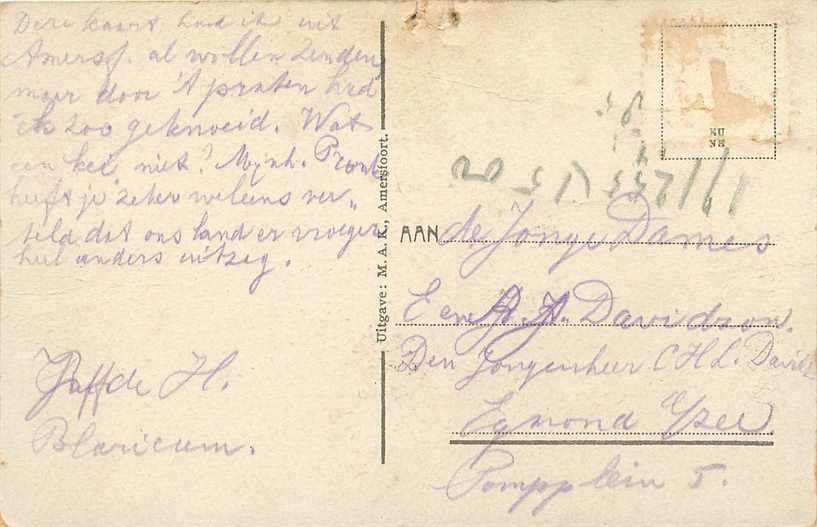 Deze kaart had ik uit
Amersf. al willen zenden
maar door 't praten had
ik zoo geknoeid. Wat
een kei niet? Mijnh. Pronk
heeft je zeker weleens ver„
teld dat ons land er vroeger
heel anders uitzag.
H.
Blaricum.
Uitgave: M. A. K., Amersfoort.
AAN de Jonge Dames
E en A. J. Davidson.
Den Jongenheer C H L. Davids
Egmond a/zee
Pompplein 5.